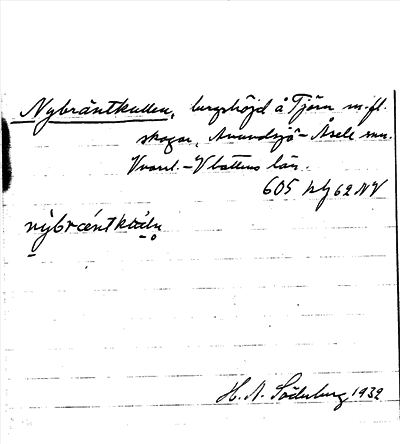 Nybräntkullen, bergshöjd å Tjärn m. fl.
skogar, Anundsjö - Åsele snr.
Vnorrl. - Vbottens län.
605 Ng 62 NV
H. N. Söderberg 1932